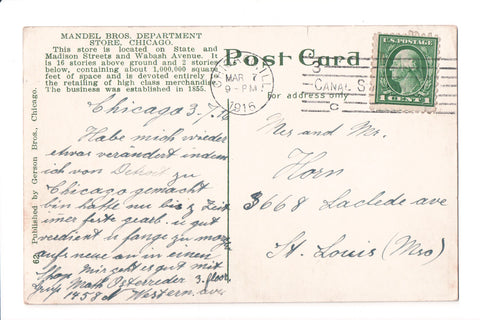 MANDEL BROS. DEPARTMENT
STORE, CHICAGO.
This store is located on State and
Madison Streets and Wabash Avenue. It
is 16 stories above ground and 2 stories
below, containing about 1,000,000 square
feet of space and is devoted entirely to
the retailing of high class merchandise.
The business was established in 1855.
62 Published by Gerson Bros., Chicago.
Post Card
For address only
MAR 7
9-PM
1916
CANAL S
C
U.S. POSTAGE
1 CENT 1
Chicago 3./7./16
Habe mich wieder
etwas verändert indem
ich von Detroit zu
Chicago gemacht
bin hatte nu bis z Zeit
imer feste gearb. u gut
verdient u fange zu morg
aufs neue an in einen
Shop Mir geht es gut mit
Gruß Math Osterreder 3. floor
1458 N Western ave
Mrs and Mr.
Horn
3668 Laclede ave
St. Louis (Mo)